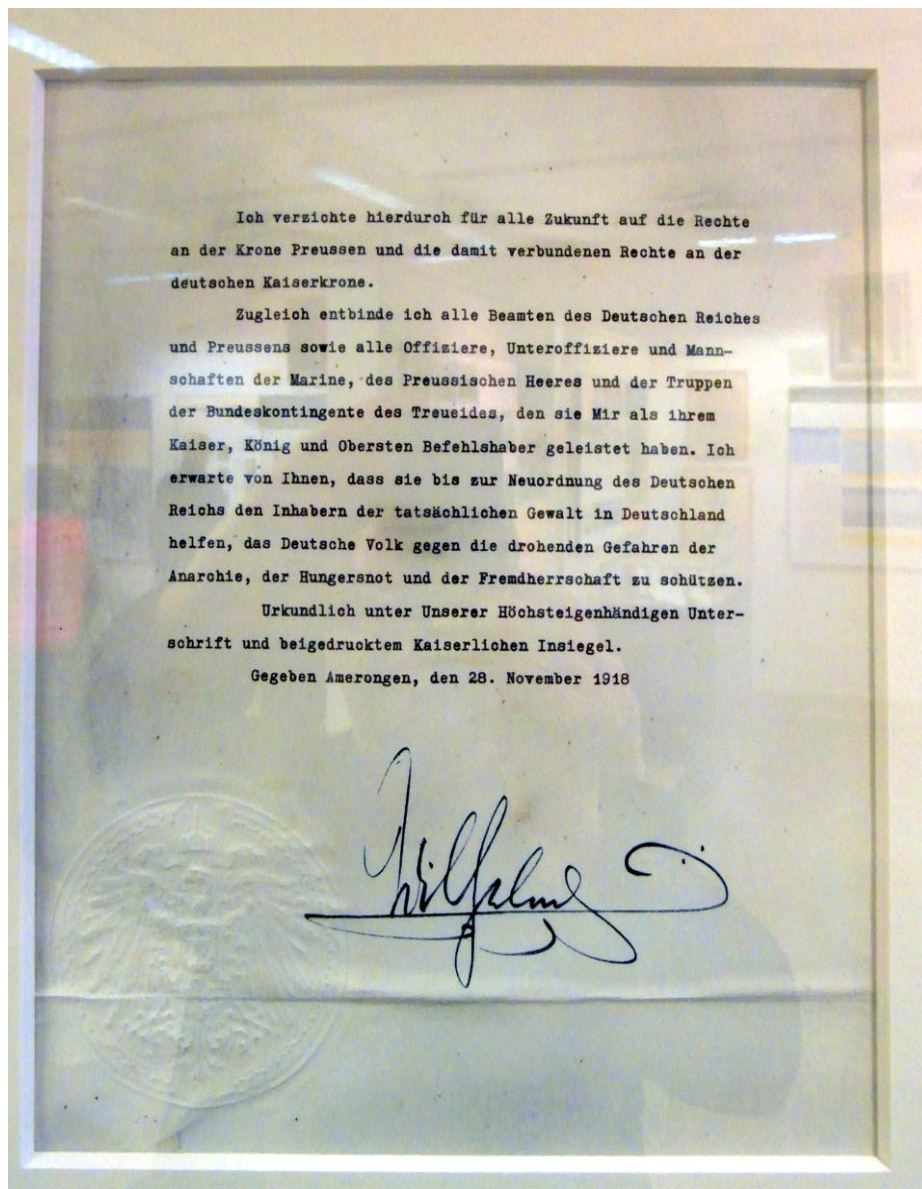 Ich verzichte hierdurch für alle Zukunft auf die Rechte
an der Krone Preussen und die damit verbundenen Rechte an der
deutschen Kaiserkrone.
Zugleich entbinde ich alle Beamten des Deutschen Reiches
und Preussens sowie alle Offiziere, Unteroffiziere und Mann-
schaften der Marine, des Preussischen Heeres und der Truppen
der Bundeskontingente des Treueides, den sie Mir als ihrem
Kaiser, König und Obersten Befehlshaber geleistet haben. Ich
erwarte von Ihnen, dass sie bis zur Neuordnung des Deutschen
Reichs den Inhabern der tatsächlichen Gewalt in Deutschland
helfen, das Deutsche Volk gegen die drohenden Gefahren der
Anarchie, der Hungersnot und der Fremdherrschaft zu schützen.
Urkundlich unter Unserer Höchsteigenhändigen Unter-
schrift und beigedrucktem Kaiserlichen Insiegel.
Gegeben Amerongen, den 28. November 1918
Wilhelm